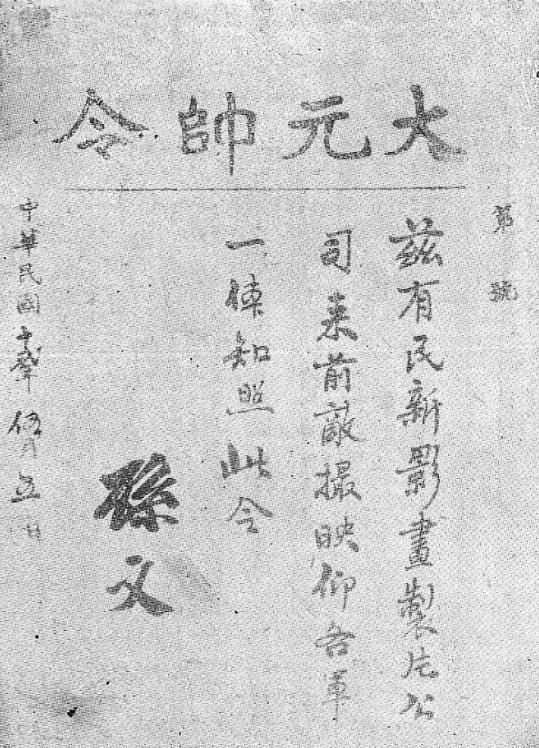 大元帥令
第 號
茲有民新影畫製片公
司来前敵撮映仰各軍
一体知照此令
孫文
中華民國十弍年伍月五日